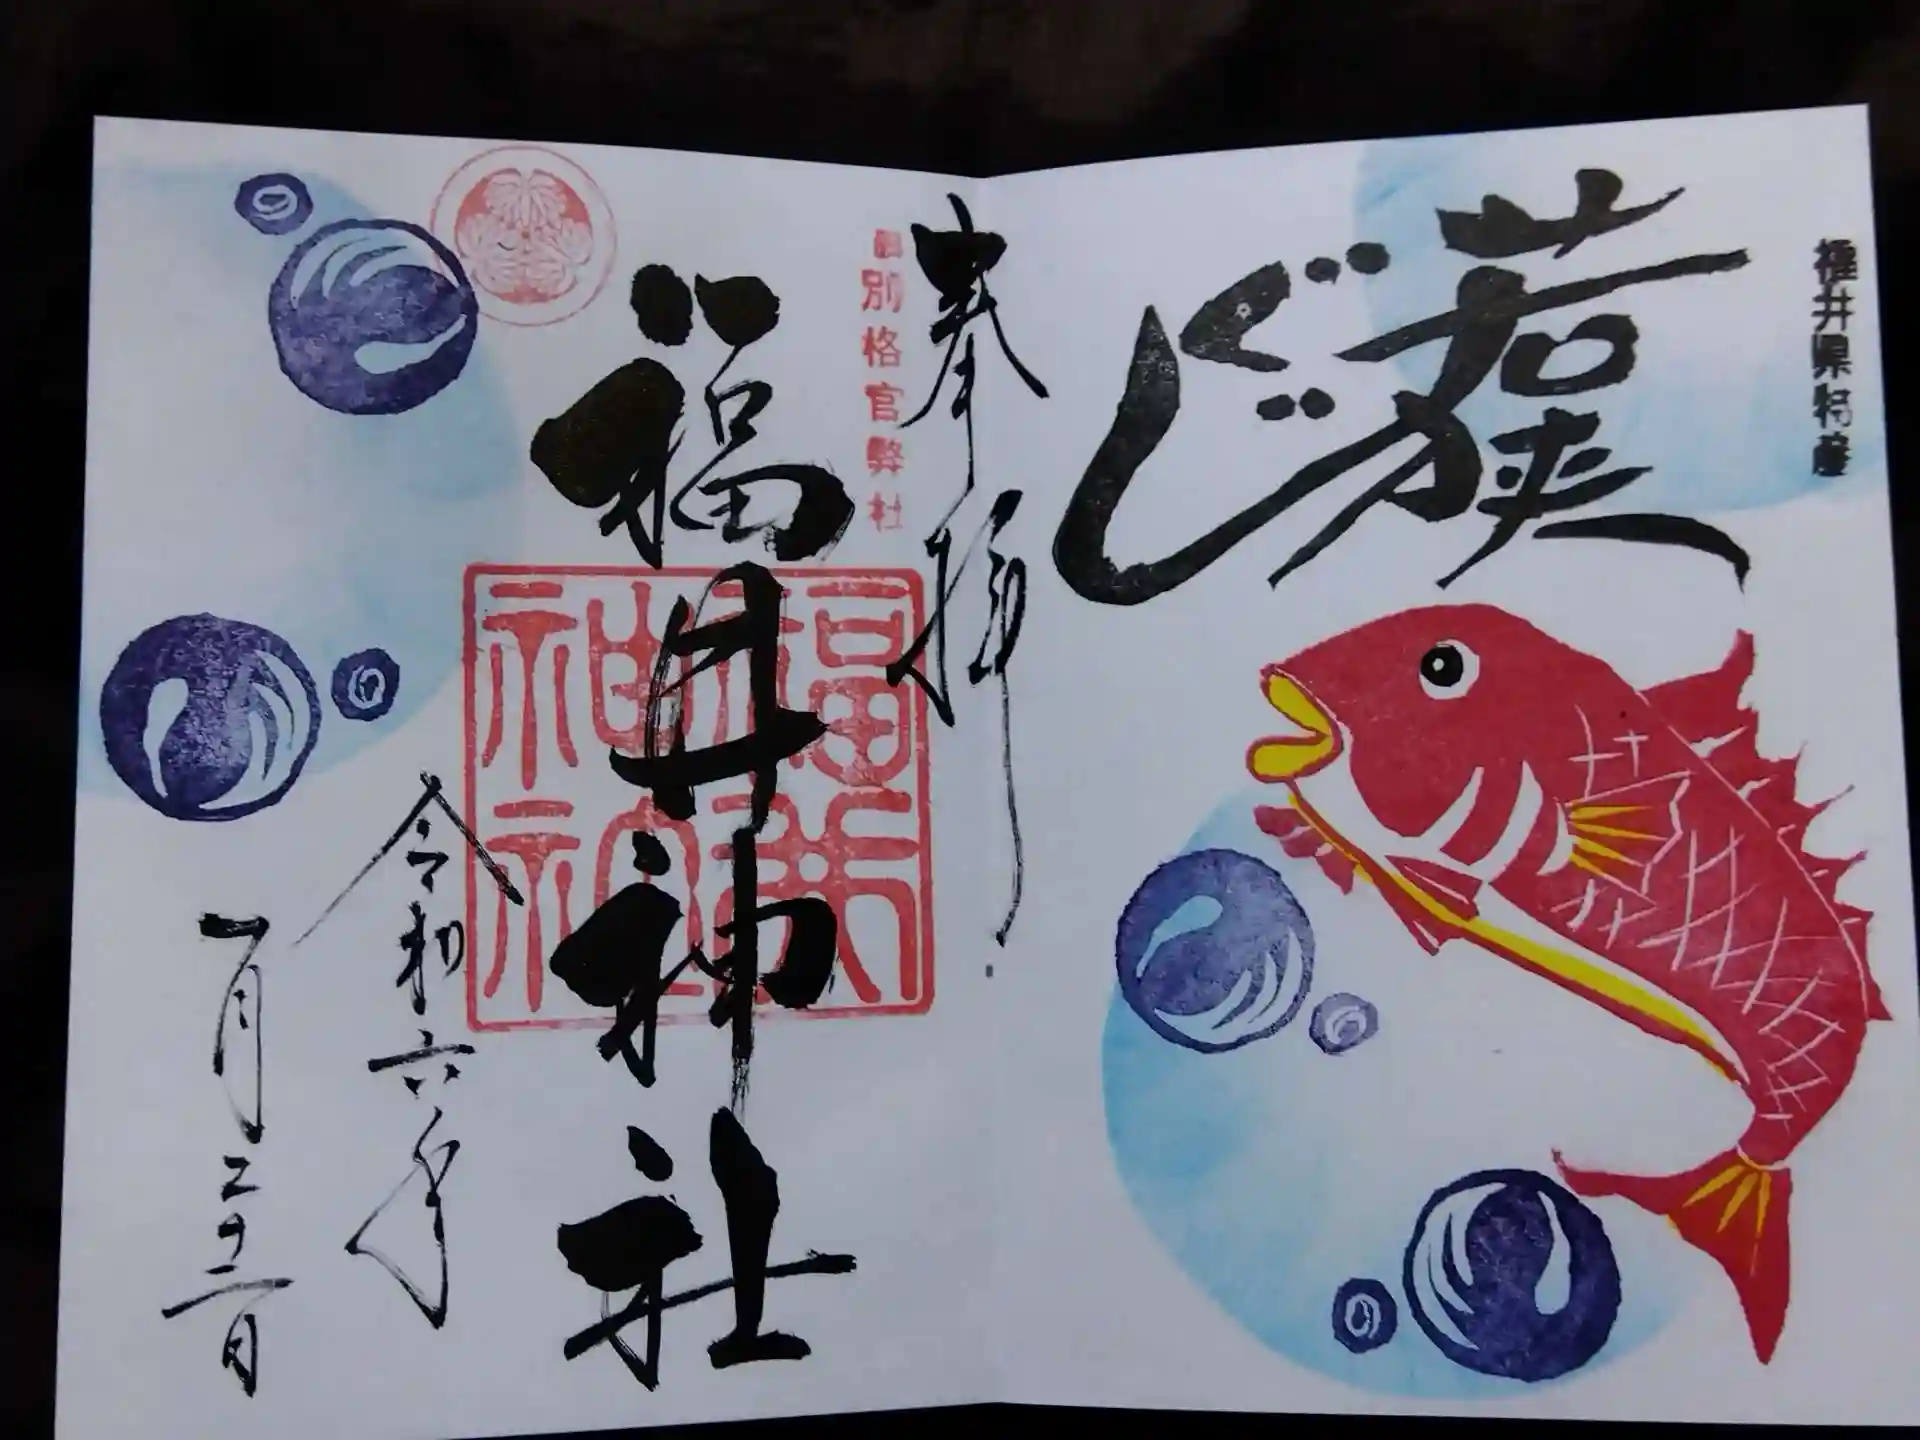 福井県特産
若狭
ぐじ
奉拝
旧別格官弊社
福井神社
福井神社
令和六年
一月二十二日